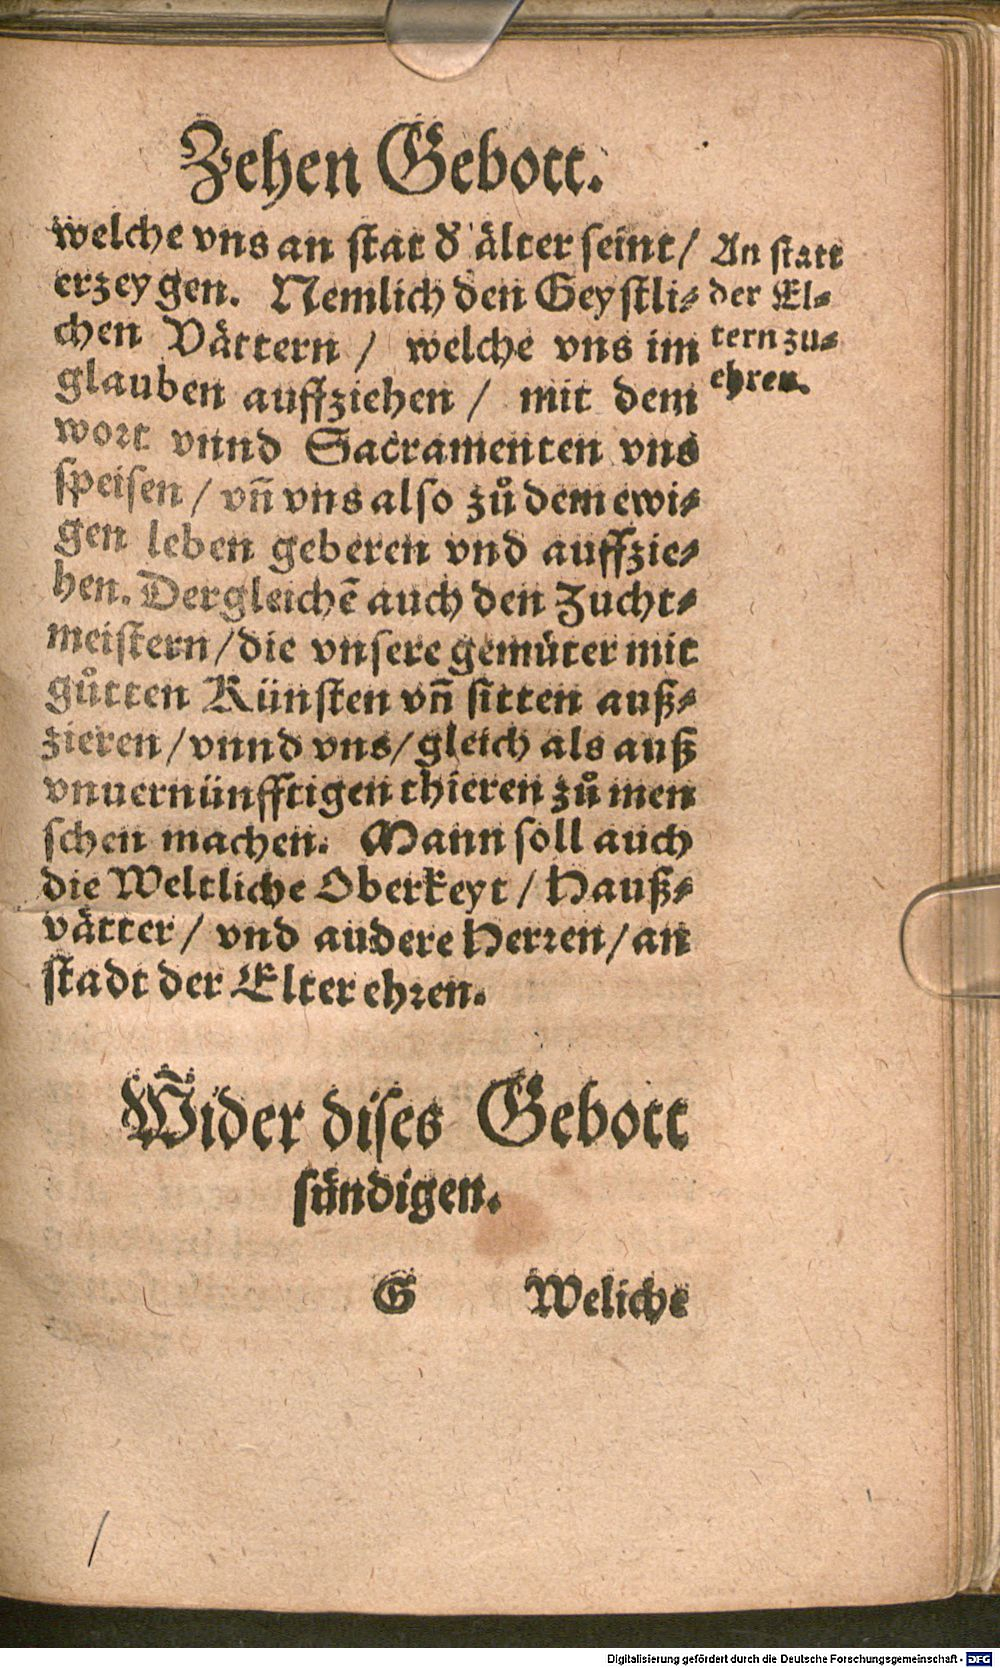 Zehen Gebott.
welche vns an stat d̕ älter seint/
erzeygen. Nemlich den Geystli-
chen Vättern / welche vns im
glauben auffziehen / mit dem
wort vnnd Sacramenten vns
speisen / vñ vns also zů dem ewi-
gen leben geberen vnd auffzie-
hen. Dergleichẽ auch den Zucht-
meistern / die vnsere gemüter mit
gůtten Künsten vñ sitten auß-
zieren / vnnd vns / gleich als auß
vnuernünfftigen thieren zů men
schen machen. Mann soll auch
die Weltliche Oberkeyt / Hauß-
vätter / vnd andere Herren / an
stadt der Elter ehren.
An statt
der El-
tern zu-
ehren.
Wider dises Gebott
sündigen.
G Weliche
Digitalisierung gefördert durch die Deutsche Forschungsgemeinschaft - DFG